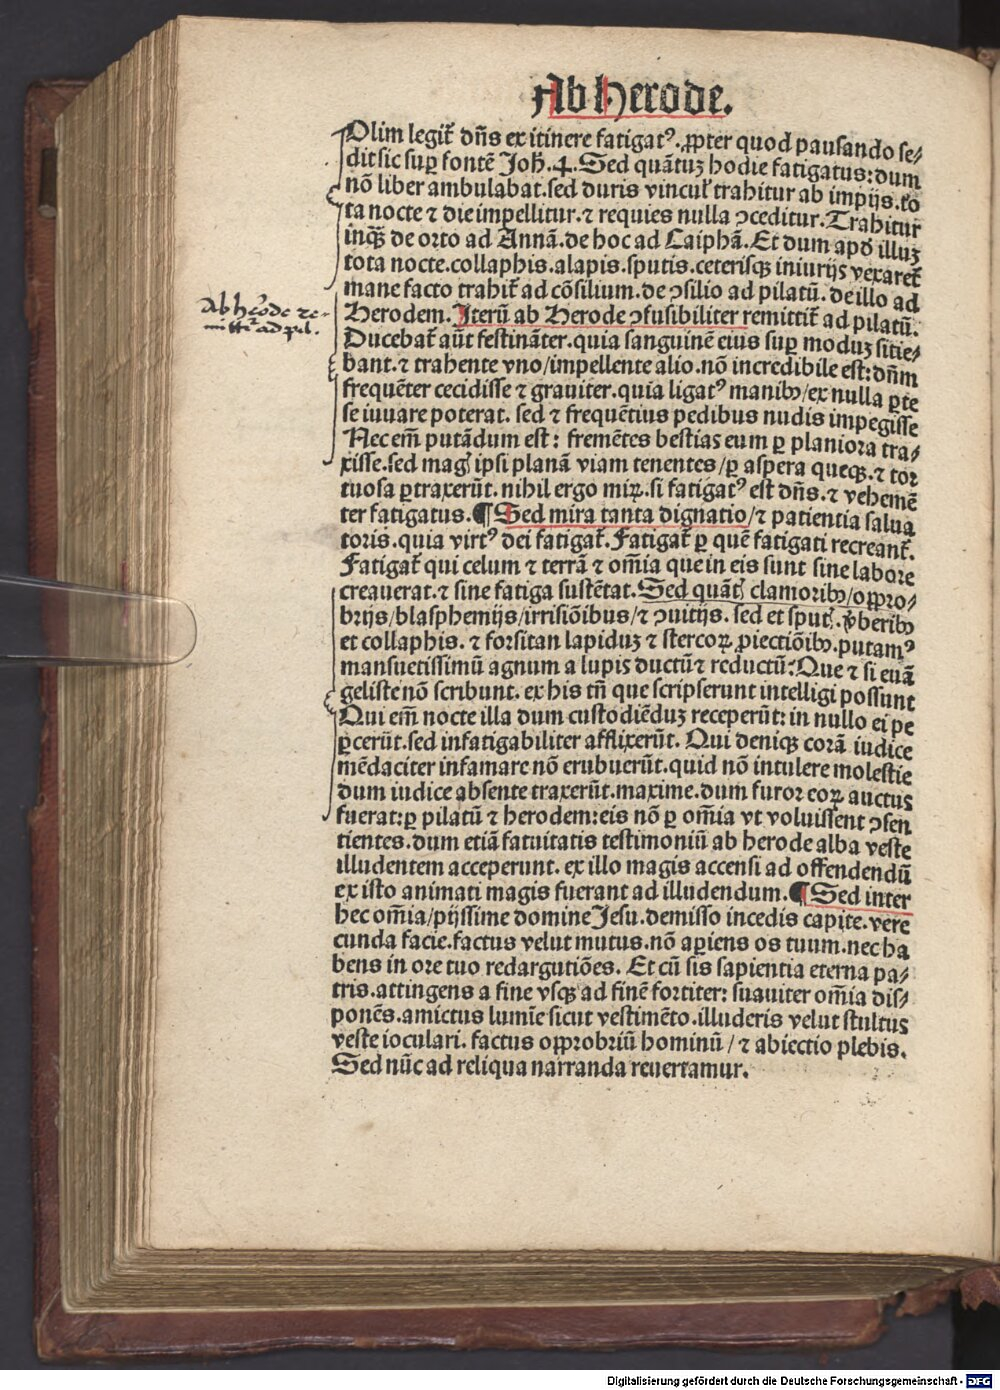 Ab Herode.
Olim legit̃ dñs ex itinere fatigatꝰ.ꝓpter quod pausando se⸗
dit sic suꝑ fontẽ Joh̃.4.Sed quãtuꝫ hodie fatigatus:dum
nõ liber ambulabat.sed duris vinculꝭ trahitur ab impijs.to
ta nocte ⁊ die impellitur.⁊ requies nulla ꝯceditur.Trahitur
inqꝫ̃ de orto ad Annã.de hoc ad Caiphã.Et dum apd̕ illuꝫ
tota nocte.collaphis.alapis.sputis.ceterisqꝫ iniurijs vexaret̃
mane facto trahit̃ ad cõsilium.de ꝯsilio ad pilatũ.de illo ad
Herodem. Iterũ ab Herode ꝯfusibiliter remittit̃ ad pilatũ.
Ab herode re-
mittitr ad pil.
Ducebat̃ aũt festinãter.quia sanguinẽ eius suꝑ moduꝫ sitie⸗
bant.⁊ trahente vno/impellente alio.nõ incredibile est:dñm
frequẽter cecidisse ⁊ grauiter.quia ligatꝰ manibꝫ/ex nulla ꝑte
se iuuare poterat. sed ⁊ frequẽtius pedibus nudis impegisse
Nec em̃ putãdum est: fremẽtes bestias eum ꝑ planiora tra⸗
xisse.sed magꝭ ipsi planã viam tenentes/ꝑ aspera queqꝫ.⁊ tor
tuosa ꝑtraxerũt.nihil ergo miꝝ.si fatigatꝰ est dñs.⁊ vehemẽ
ter fatigatus.¶ Sed mira tanta dignatio/⁊ patientia salua
toris.quia virtꝰ dei fatigat̃.Fatigat̃ ꝑ quẽ fatigati recreant̃.
Fatigat̃ qui celum ⁊ terrã ⁊ om̃ia que in eis sunt sine labore
creauerat.⁊ sine fatiga sustẽtat.Sed quãtꝭ clamoribꝫ/oꝓro⸗
brijs/blasphemijs/irrisiõibus/⁊ ꝯuitijs. sed et sputꝭ.v̕beribꝫ
et collaphis.⁊ forsitan lapiduꝫ ⁊ stercoꝝ ꝓiectiõibꝫ.putamꝰ
mansuetissimũ agnum a lupis ductũ ⁊ reductũ:Que ⁊ si euã
geliste nõ scribunt. ex his tñ que scripserunt intelligi possunt
Qui em̃ nocte illa dum custodiẽduꝫ receperũt: in nullo ei pe
ꝑcerũt.sed infatigabiliter afflixerũt. Qui deniqꝫ corã iudice
mẽdaciter infamare nõ erubuerũt.quid nõ intulere molestie
dum iudice absente traxerũt.maxime.dum furor eoꝝ auctus
fuerat:ꝑ pilatũ ⁊ herodem:eis nõ ꝑ om̃ia vt voluissent ꝯsen
tientes.dum etiã fatuitatis testimoniũ ab herode alba veste
illudentem acceperunt. ex illo magis accensi ad offendendũ
ex isto animati magis fuerant ad illudendum.¶ Sed inter
hec om̃ia/pijssime domine Jesu.demisso incedis capite.vere
cunda facie.factus velut mutus.nõ aꝑiens os tuum.nec ha
bens in ore tuo redargutiões. Et cũ sis sapientia eterna pa⸗
tris.attingens a fine vsqꝫ ad finẽ fortiter: suauiter om̃ia dis⸗
ponẽs.amictus lumĩe sicut vestimẽto.illuderis velut stultus
veste ioculari. factus oꝓrobriũ hominũ/⁊ abiectio plebis.
Sed nũc ad reliqua narranda reuertamur.
Digitalisierung gefördert durch die Deutsche Forschungsgemeinschaft - DFG